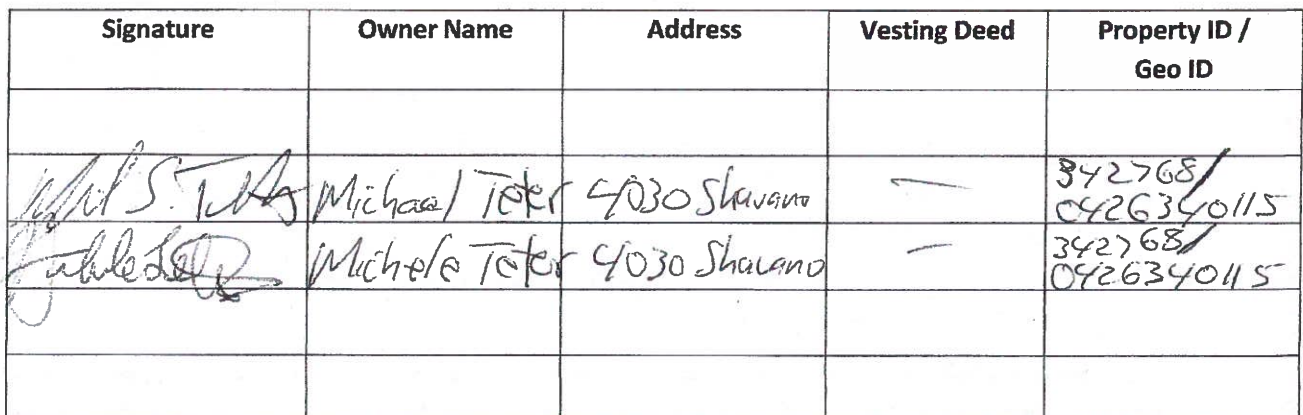 Signature Owner Name Address Vesting Deed Property ID /
Geo ID
Michael Teter 4030 Shavano — 342768/
0426340115
Michele Teter 4030 Shavano — 342768/
0426340115